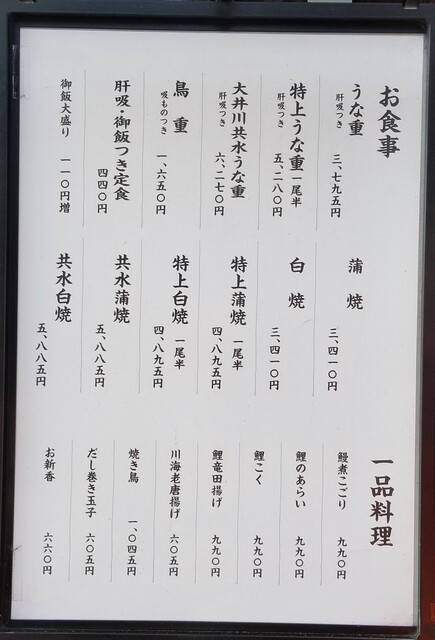 お食事
うな重
肝吸つき
三、七九五円
特上うな重 一尾半
肝吸つき
五、二八〇円
大井川共水うな重
肝吸つき
六、二七〇円
鳥重
吸ものつき
一、六五〇円
肝吸・御飯つき定食
四四〇円
御飯大盛り
一一〇円増
蒲焼
三、四一〇円
白焼
三、四一〇円
特上蒲焼 一尾半
四、八九五円
特上白焼 一尾半
四、八九五円
共水蒲焼
五、八八五円
共水白焼
五、八八五円
一品料理
鰻煮こごり 九九〇円
鯉のあらい 九九〇円
鯉こく 九九〇円
鯉竜田揚げ 九九〇円
川海老唐揚げ 六〇五円
焼き鳥 一、〇四五円
だし巻き玉子 六〇五円
お新香 六六〇円